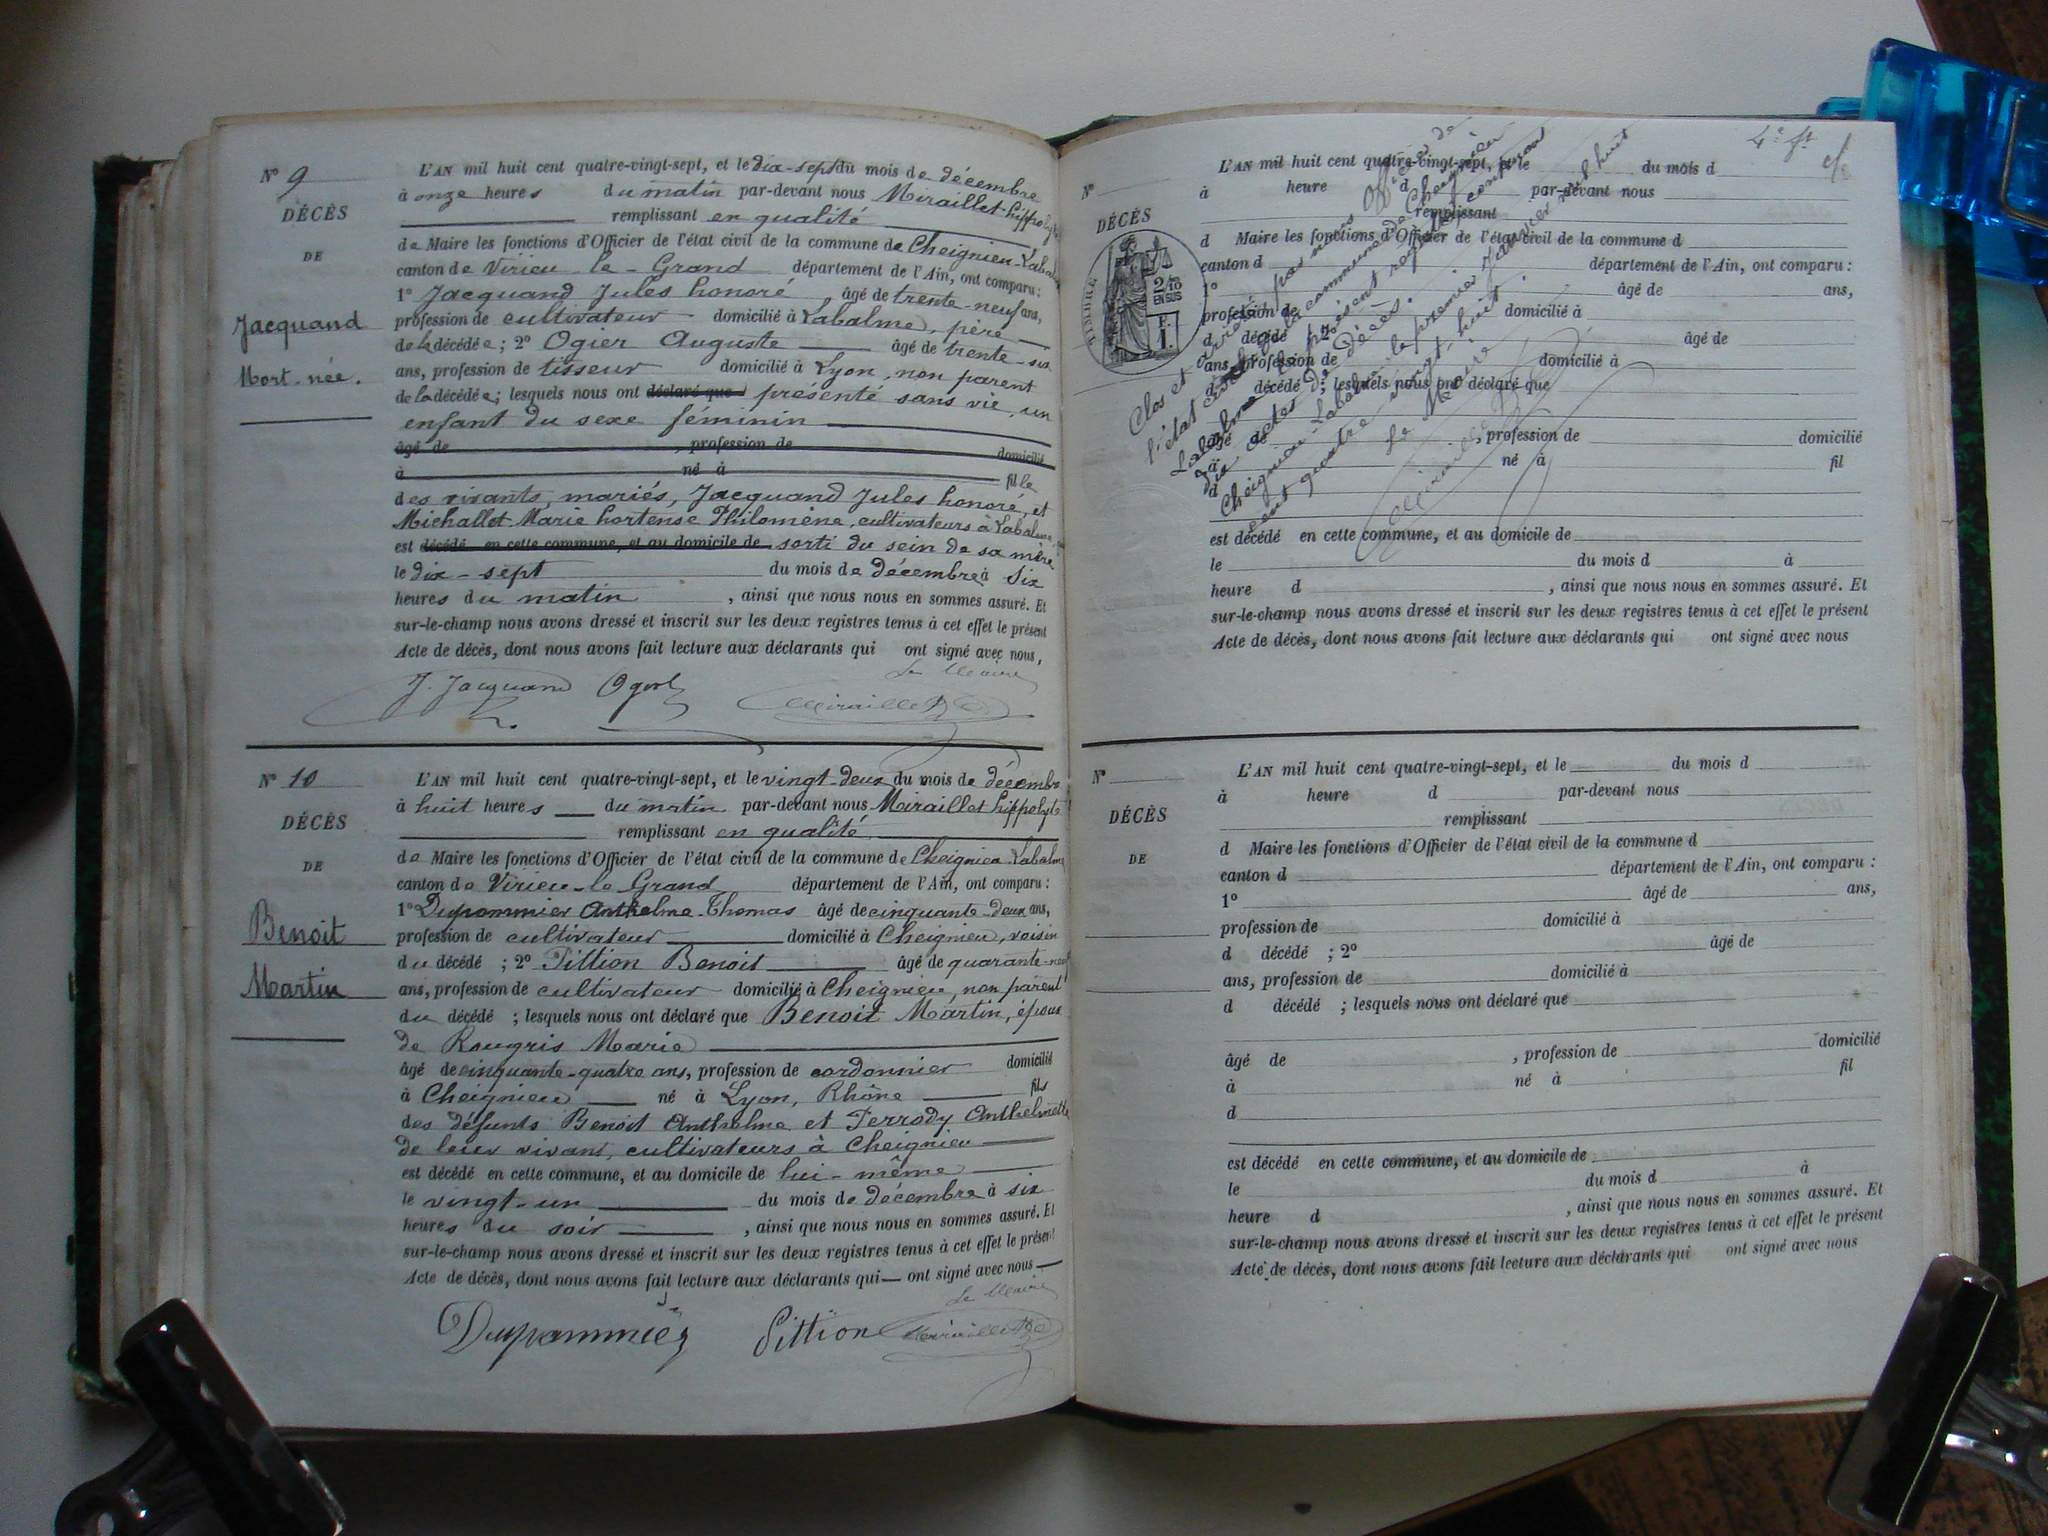 N° 9
DÉCÈS
DE
Jacquand
Mort-née.
L'AN mil huit cent quatre-vingt-sept, et le dix-sept du mois de décembre
à onze heures du matin par-devant nous Miraillet hippolyte
remplissant en qualité
de Maire les fonctions d'Officier de l'état civil de la commune de Cheignieu-Labalme
canton de Virieu-le-Grand département de l'Ain, ont comparu :
1° Jacquand Jules honoré, âgé de trente-neuf ans,
profession de cultivateur domicilié à Labalme, père
de la décédée ; 2° Ogier Auguste âgé de trente-six
ans, profession de tisseur domicilié à Lyon, non parent
de la décédée ; lesquels nous ont déclaré que présenté sans vie, un
enfant du sexe féminin
âgé de , profession de domicilié
à né à fille
des vivants, mariés, Jacquand Jules honoré, et
Michallet Marie hortense Philomène, cultivateurs à Labalme,
est décédé en cette commune, et au domicile de sorti du sein de sa mère
le dix-sept du mois de décembre à six
heures du matin , ainsi que nous nous en sommes assuré. Et
sur-le-champ nous avons dressé et inscrit sur les deux registres tenus à cet effet le présent
Acte de décès, dont nous avons fait lecture aux déclarants qui ont signé avec nous,
Le Maire
J. Jacquand Miraillet
N° 10
DÉCÈS
DE
Benoit
Martin
L'AN mil huit cent quatre-vingt-sept, et le vingt-deux du mois de décembre
à huit heures du matin par-devant nous Miraillet hippolyte
remplissant en qualité
de Maire les fonctions d'Officier de l'état civil de la commune de Cheignieu-Labalme
canton de Virieu-le-Grand département de l'Ain, ont comparu :
1° Dupommier Anthelme-Thomas âgé de cinquante-deux ans,
profession de cultivateur domicilié à Cheignieu, voisin
du décédé ; 2° Pittion Benoit âgé de quarante-neuf
ans, profession de cultivateur domicilié à Cheignieu, non parent
du décédé ; lesquels nous ont déclaré que Benoit Martin, époux
de Rougris Marie
âgé de cinquante-quatre ans, profession de cordonnier domicilié
à Cheignieu né à Lyon, Rhône fils
des défunts Benoit Anthelme et Ferrody Anthelmette
de leur vivant, cultivateurs à Cheignieu
est décédé en cette commune, et au domicile de lui-même
le vingt-un du mois de décembre à six
heures du soir , ainsi que nous nous en sommes assuré. Et
sur-le-champ nous avons dressé et inscrit sur les deux registres tenus à cet effet le présent
Acte de décès, dont nous avons fait lecture aux déclarants qui ont signé avec nous
Le Maire
Dupommier Pittion Miraillet
N°
DÉCÈS
TIMBRE
2/10
EN SUS
1 F.
L'AN mil huit cent quatre-vingt-sept, et le du mois d
à heure d par-devant nous
remplissant
d Maire les fonctions d'Officier de l'état civil de la commune d
canton d département de l'Ain, ont comparu :
1° âgé de ans,
profession de domicilié à
d décédé ; 2° âgé de
ans, profession de domicilié à
d décédé ; lesquels nous ont déclaré que
âgé de , profession de domicilié
à né à fil
d
est décédé en cette commune, et au domicile de
le du mois d à
heure d , ainsi que nous nous en sommes assuré. Et
sur-le-champ nous avons dressé et inscrit sur les deux registres tenus à cet effet le présent
Acte de décès, dont nous avons fait lecture aux déclarants qui ont signé avec nous
Clos et arrêté par nous Officier de
l'état civil de la commune de Cheignieu
Labalme le présent registre contenant
dix actes de Décès.
Cheignieu-Labalme le premier Janvier mil huit
cent quatre vingt-huit.
Le Maire
Miraillet
N°
DÉCÈS
DE
L'AN mil huit cent quatre-vingt-sept, et le du mois d
à heure d par-devant nous
remplissant
d Maire les fonctions d'Officier de l'état civil de la commune d
canton d département de l'Ain, ont comparu :
1° âgé de ans,
profession de domicilié à
d décédé ; 2° âgé de
ans, profession de domicilié à
d décédé ; lesquels nous ont déclaré que
âgé de , profession de domicilié
à né à fil
d
est décédé en cette commune, et au domicile de
le du mois d à
heure d , ainsi que nous nous en sommes assuré. Et
sur-le-champ nous avons dressé et inscrit sur les deux registres tenus à cet effet le présent
Acte de décès, dont nous avons fait lecture aux déclarants qui ont signé avec nous